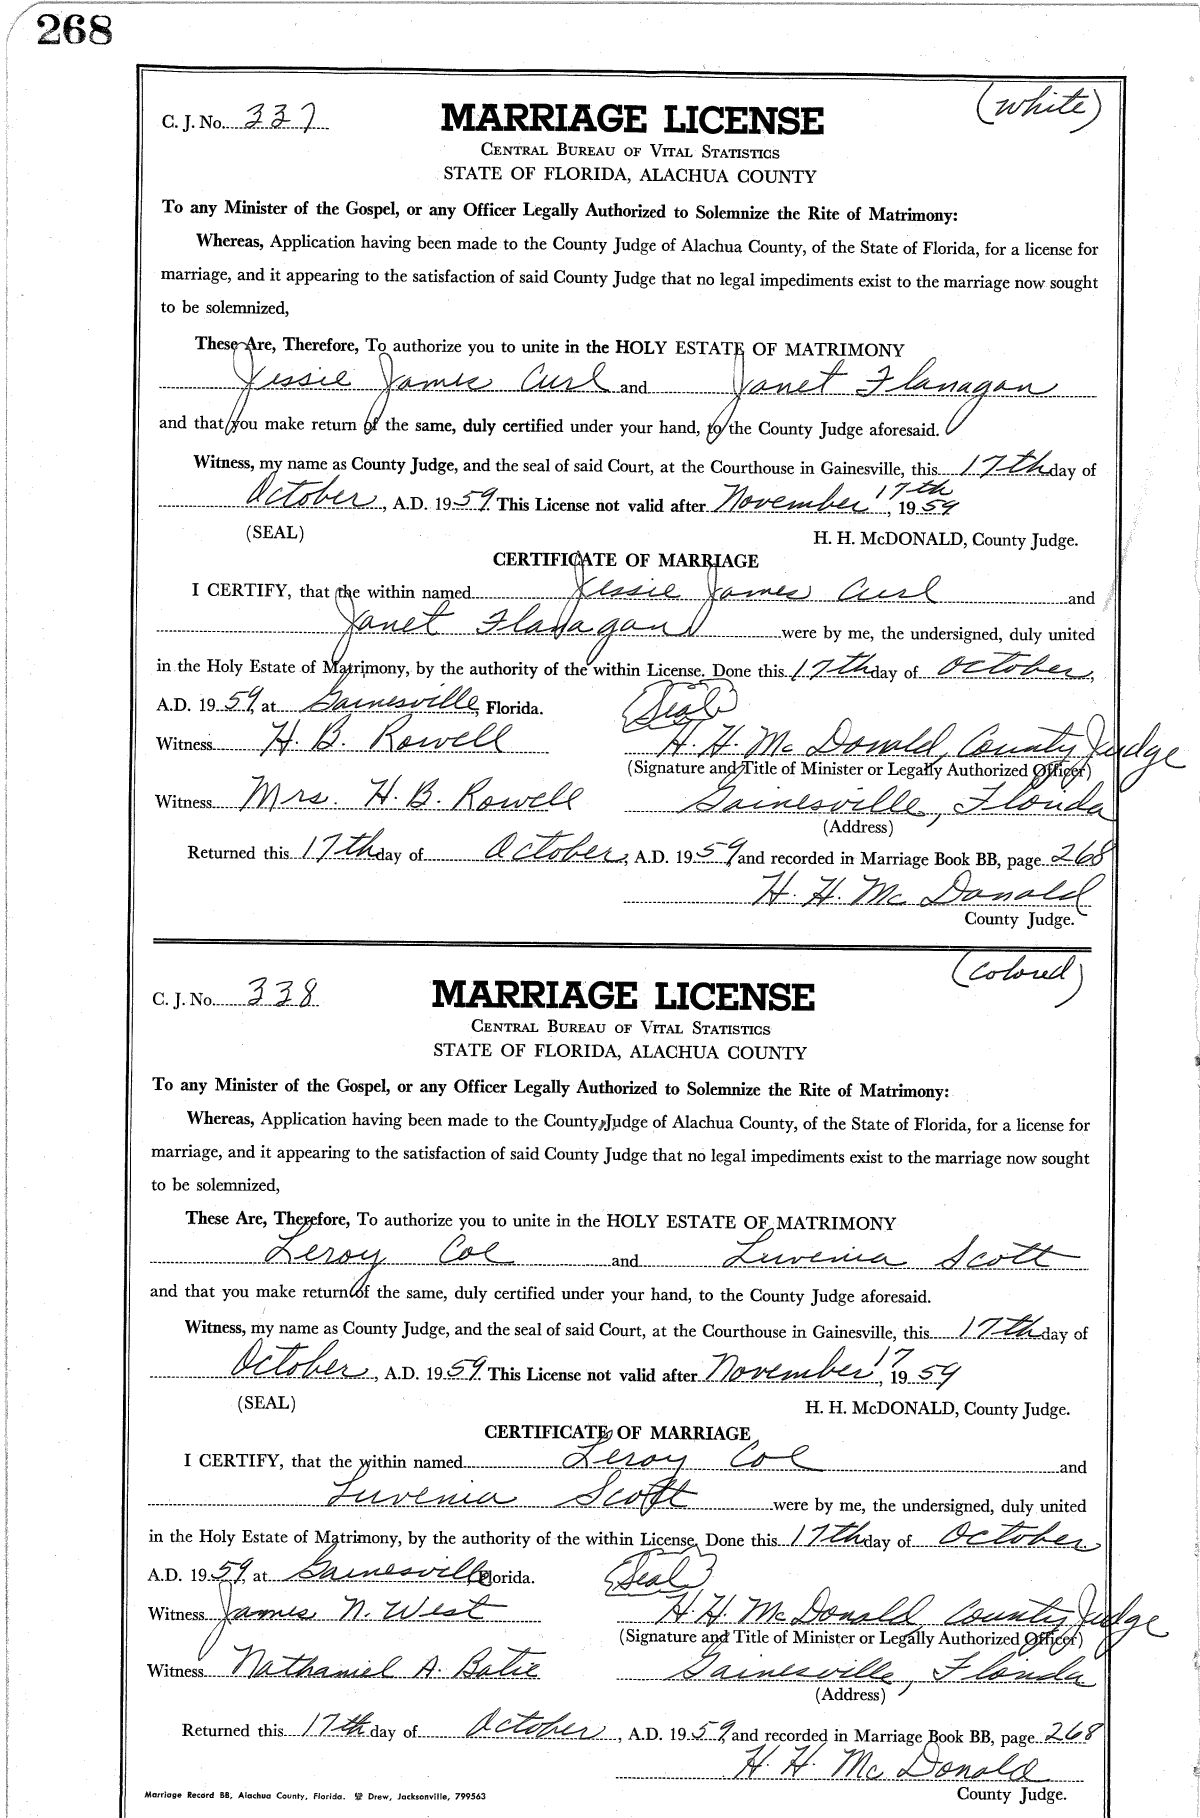 268
(white)
C. J. No. 337
MARRIAGE LICENSE
CENTRAL BUREAU OF VITAL STATISTICS
STATE OF FLORIDA, ALACHUA COUNTY
To any Minister of the Gospel, or any Officer Legally Authorized to Solemnize the Rite of Matrimony:
Whereas, Application having been made to the County Judge of Alachua County, of the State of Florida, for a license for
marriage, and it appearing to the satisfaction of said County Judge that no legal impediments exist to the marriage now sought
to be solemnized,
These Are, Therefore, To authorize you to unite in the HOLY ESTATE OF MATRIMONY
Jessie James Curl and Janet Flanagan
and that you make return of the same, duly certified under your hand, to the County Judge aforesaid.
Witness, my name as County Judge, and the seal of said Court, at the Courthouse in Gainesville, this 17th day of
October, A.D. 1959. This License not valid after November 17th, 1959
(SEAL) H. H. McDONALD, County Judge.
CERTIFICATE OF MARRIAGE
I CERTIFY, that the within named Jessie James Curl and
Janet Flanagan were by me, the undersigned, duly united
in the Holy Estate of Matrimony, by the authority of the within License. Done this 17th day of October,
A.D. 1959, at Gainesville, Florida. (Seal)
Witness H. B. Rowell H. H. McDonald, County Judge
(Signature and Title of Minister or Legally Authorized Officer)
Witness Mrs. H. B. Rowell Gainesville, Florida
(Address)
Returned this 17th day of October, A.D. 1959, and recorded in Marriage Book BB, page 268
H. H. McDonald
County Judge.
(Colored)
C. J. No. 338
MARRIAGE LICENSE
CENTRAL BUREAU OF VITAL STATISTICS
STATE OF FLORIDA, ALACHUA COUNTY
To any Minister of the Gospel, or any Officer Legally Authorized to Solemnize the Rite of Matrimony:
Whereas, Application having been made to the County Judge of Alachua County, of the State of Florida, for a license for
marriage, and it appearing to the satisfaction of said County Judge that no legal impediments exist to the marriage now sought
to be solemnized,
These Are, Therefore, To authorize you to unite in the HOLY ESTATE OF MATRIMONY
Leroy Coe and Luvenia Scott
and that you make return of the same, duly certified under your hand, to the County Judge aforesaid.
Witness, my name as County Judge, and the seal of said Court, at the Courthouse in Gainesville, this 17th day of
October, A.D. 1959. This License not valid after November 17, 1959
(SEAL) H. H. McDONALD, County Judge.
CERTIFICATE OF MARRIAGE
I CERTIFY, that the within named Leroy Coe and
Luvenia Scott were by me, the undersigned, duly united
in the Holy Estate of Matrimony, by the authority of the within License. Done this 17th day of October
A.D. 1959, at Gainesville, Florida. (Seal)
Witness James N. West H. H. McDonald, County Judge
(Signature and Title of Minister or Legally Authorized Officer)
Witness Nathaniel A. Batie Gainesville, Florida
(Address)
Returned this 17th day of October, A.D. 1959, and recorded in Marriage Book BB, page 268
H. H. McDonald
County Judge.
Marriage Record BB, Alachua County, Florida. Drew, Jacksonville, 799563